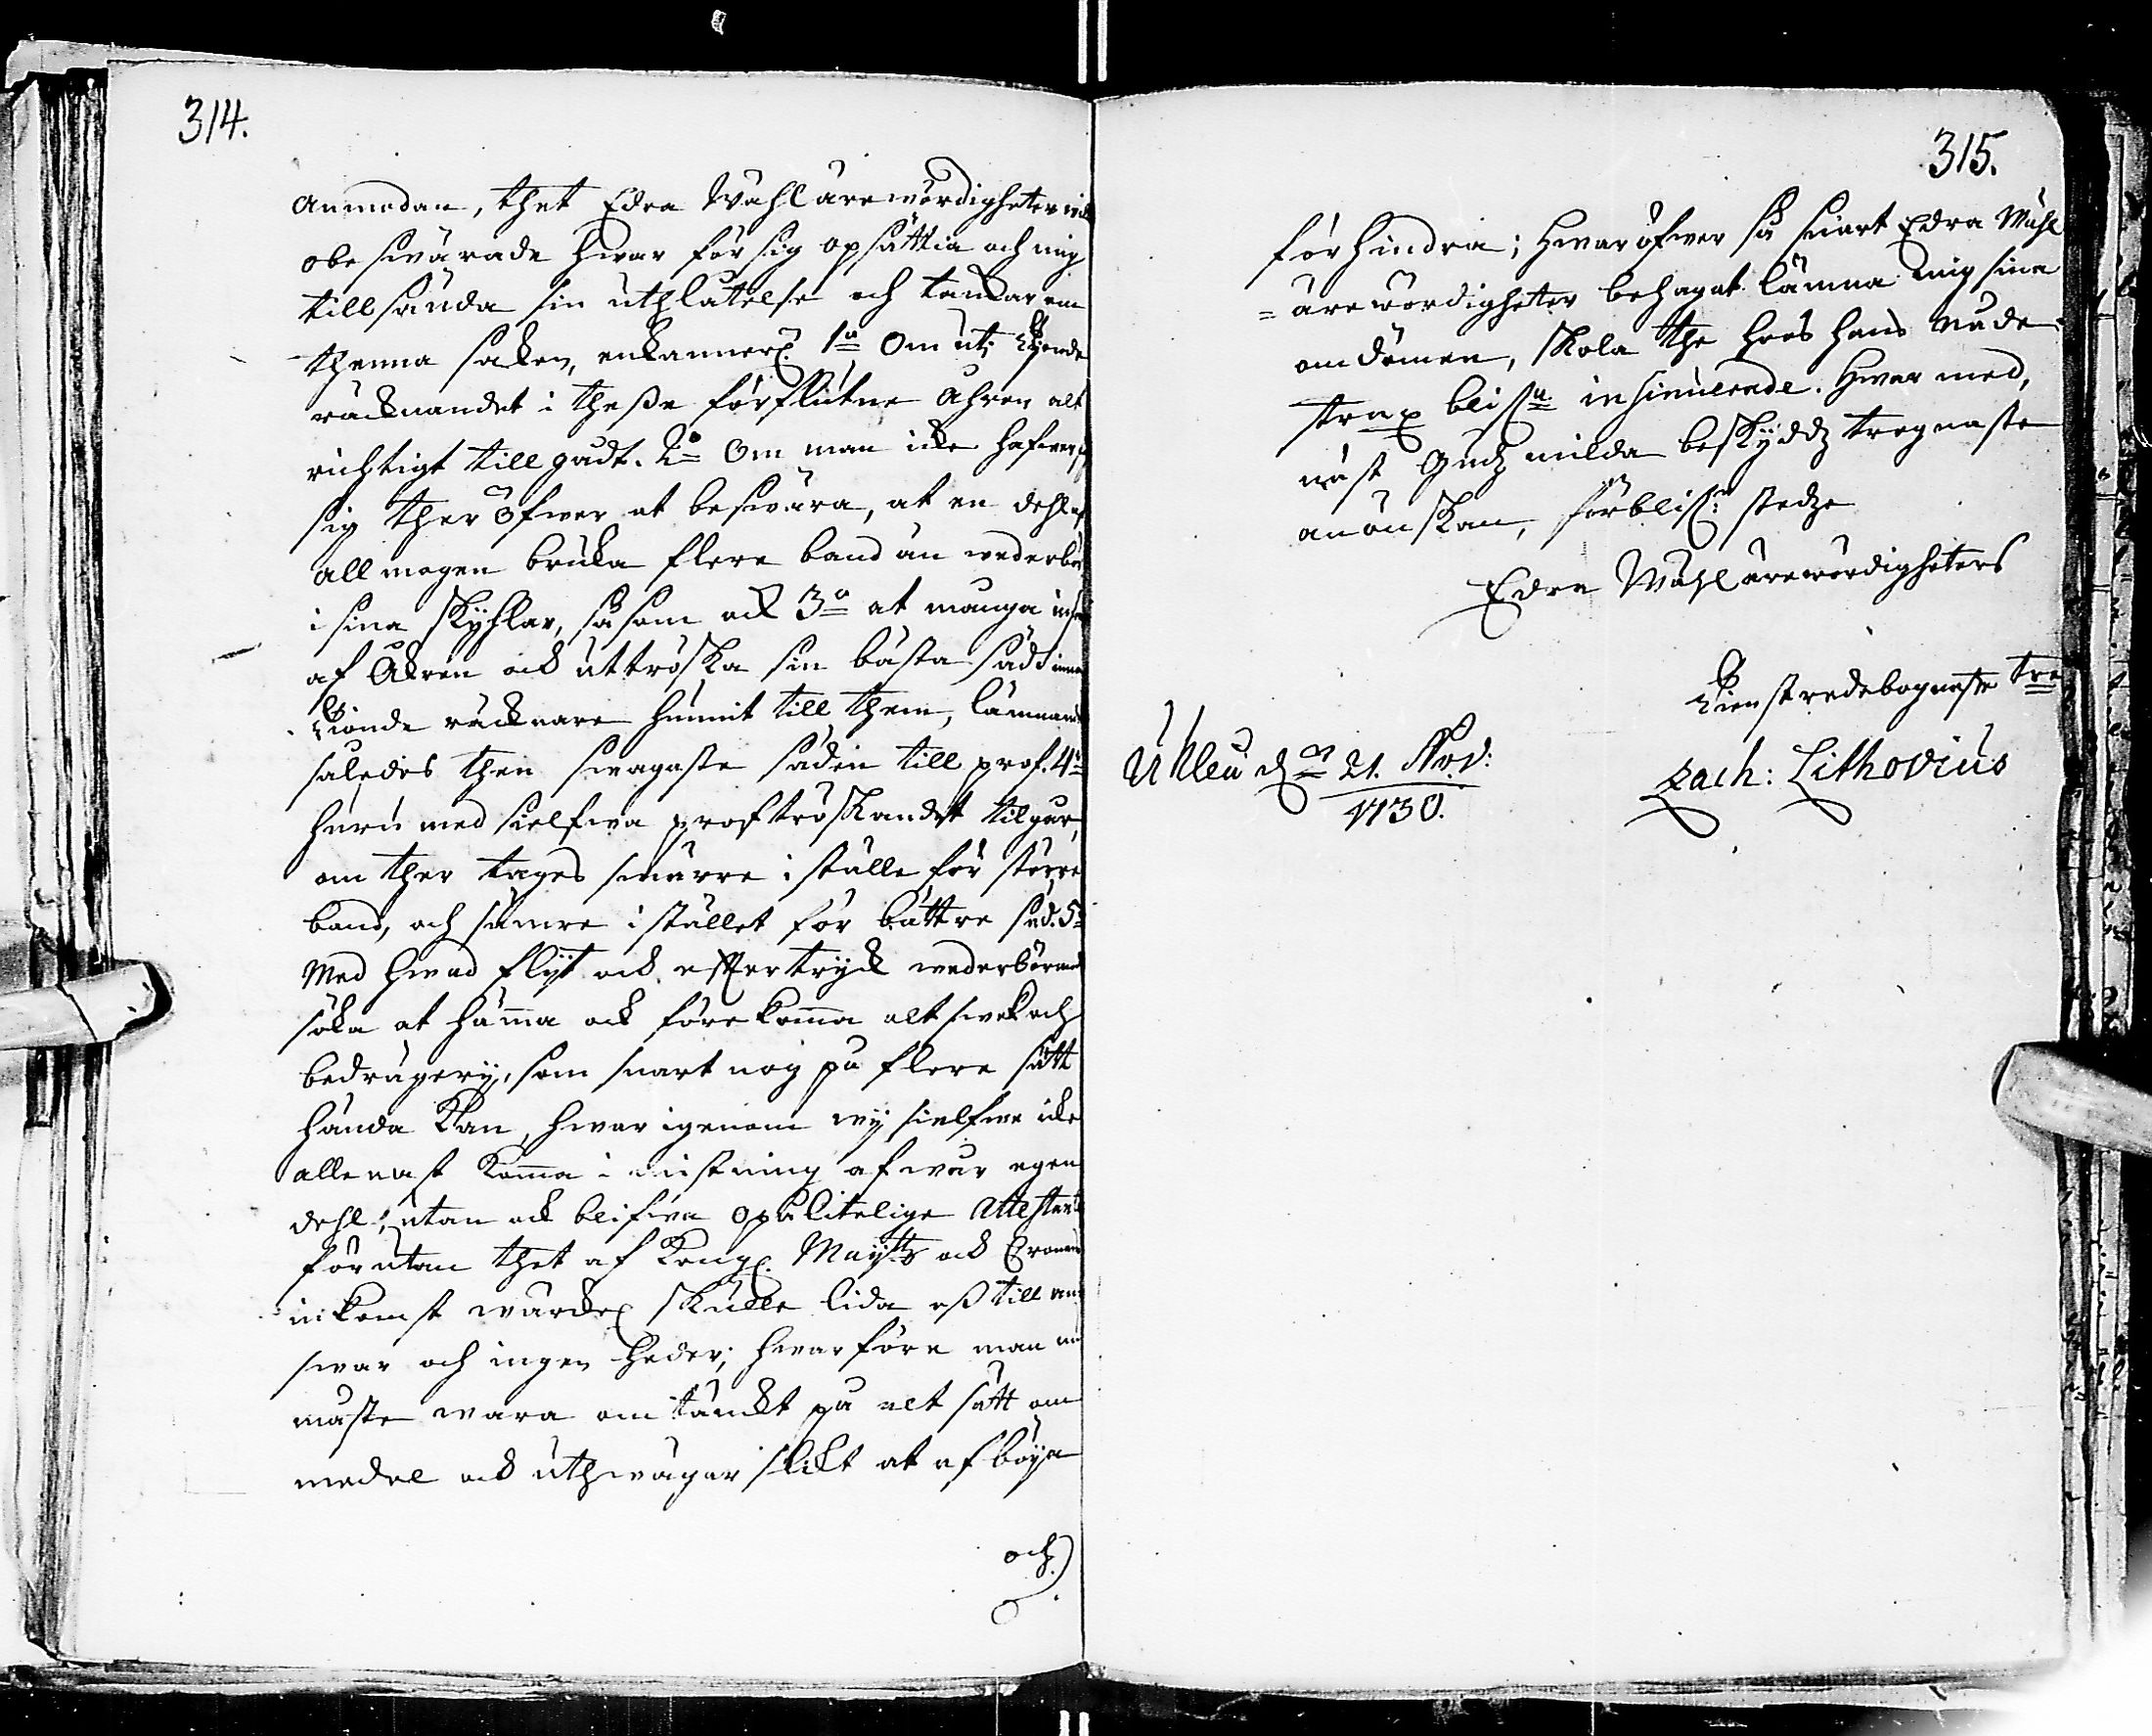 314.
anmodan, thet Edra Wähl ärewördigheter
obeswärade hwar för sig opsättia och mig
tillsända sin uthlåtelse och tanckar om
thenna saken, enkannerl. 1o Om uti Tijonde
räcknandet i theße förflutne åhren alt
richtigt tillgådt. 2o Om man icke hafwer
sig ther öfwer at beswära, at en dehl af
allmogen bruka flere band än wederbör
i sina skyhlar, såsom ock 3o at många
af Åkren ock uttröska sin bästa säd
Tionde räcknare hunnit till them, lämnande
således then swagaste säden till prof. 4o
huru med sielfwa proftröskandet tilgår,
om ther tages smärre i ställe för större
band, och sämre i stället för bättre säd. 5o
Med hwad flijt ock eftertryck wederbörande
söka at häma ock förekoma alt swek och
bedrägerij, som snart nog på flere sätt
hända kan, hwarigenom wij sielfwe icke
allenast koma i mistning af wår egen
dehl, utan ock blifwa opålitelige Attestant
förutan thet af Kongl. Maijtts ock Cronans
inkomst märckel. skulle lida oß till an¬
swar och ingen heder; hwarföre man
måste wara omtänckt på alt sätt om
medel ock uthwägar slikt at afböja
och
315.
förhindra; hwaröfwer så snart Edra Wähl
=ärewördigheter behagat lämna mig sina
omdömen, skola the hos hans nåde
strax blifa insinuerade. Hwarmed,
näst Gudz milda beskyddz trognaste
anönskan, förblifr stedze
Edra Wähl ärewördigheters
Tienstredebognaste tre
Zach: Lithovius
Uhleå dn 21. Nov:
1730.